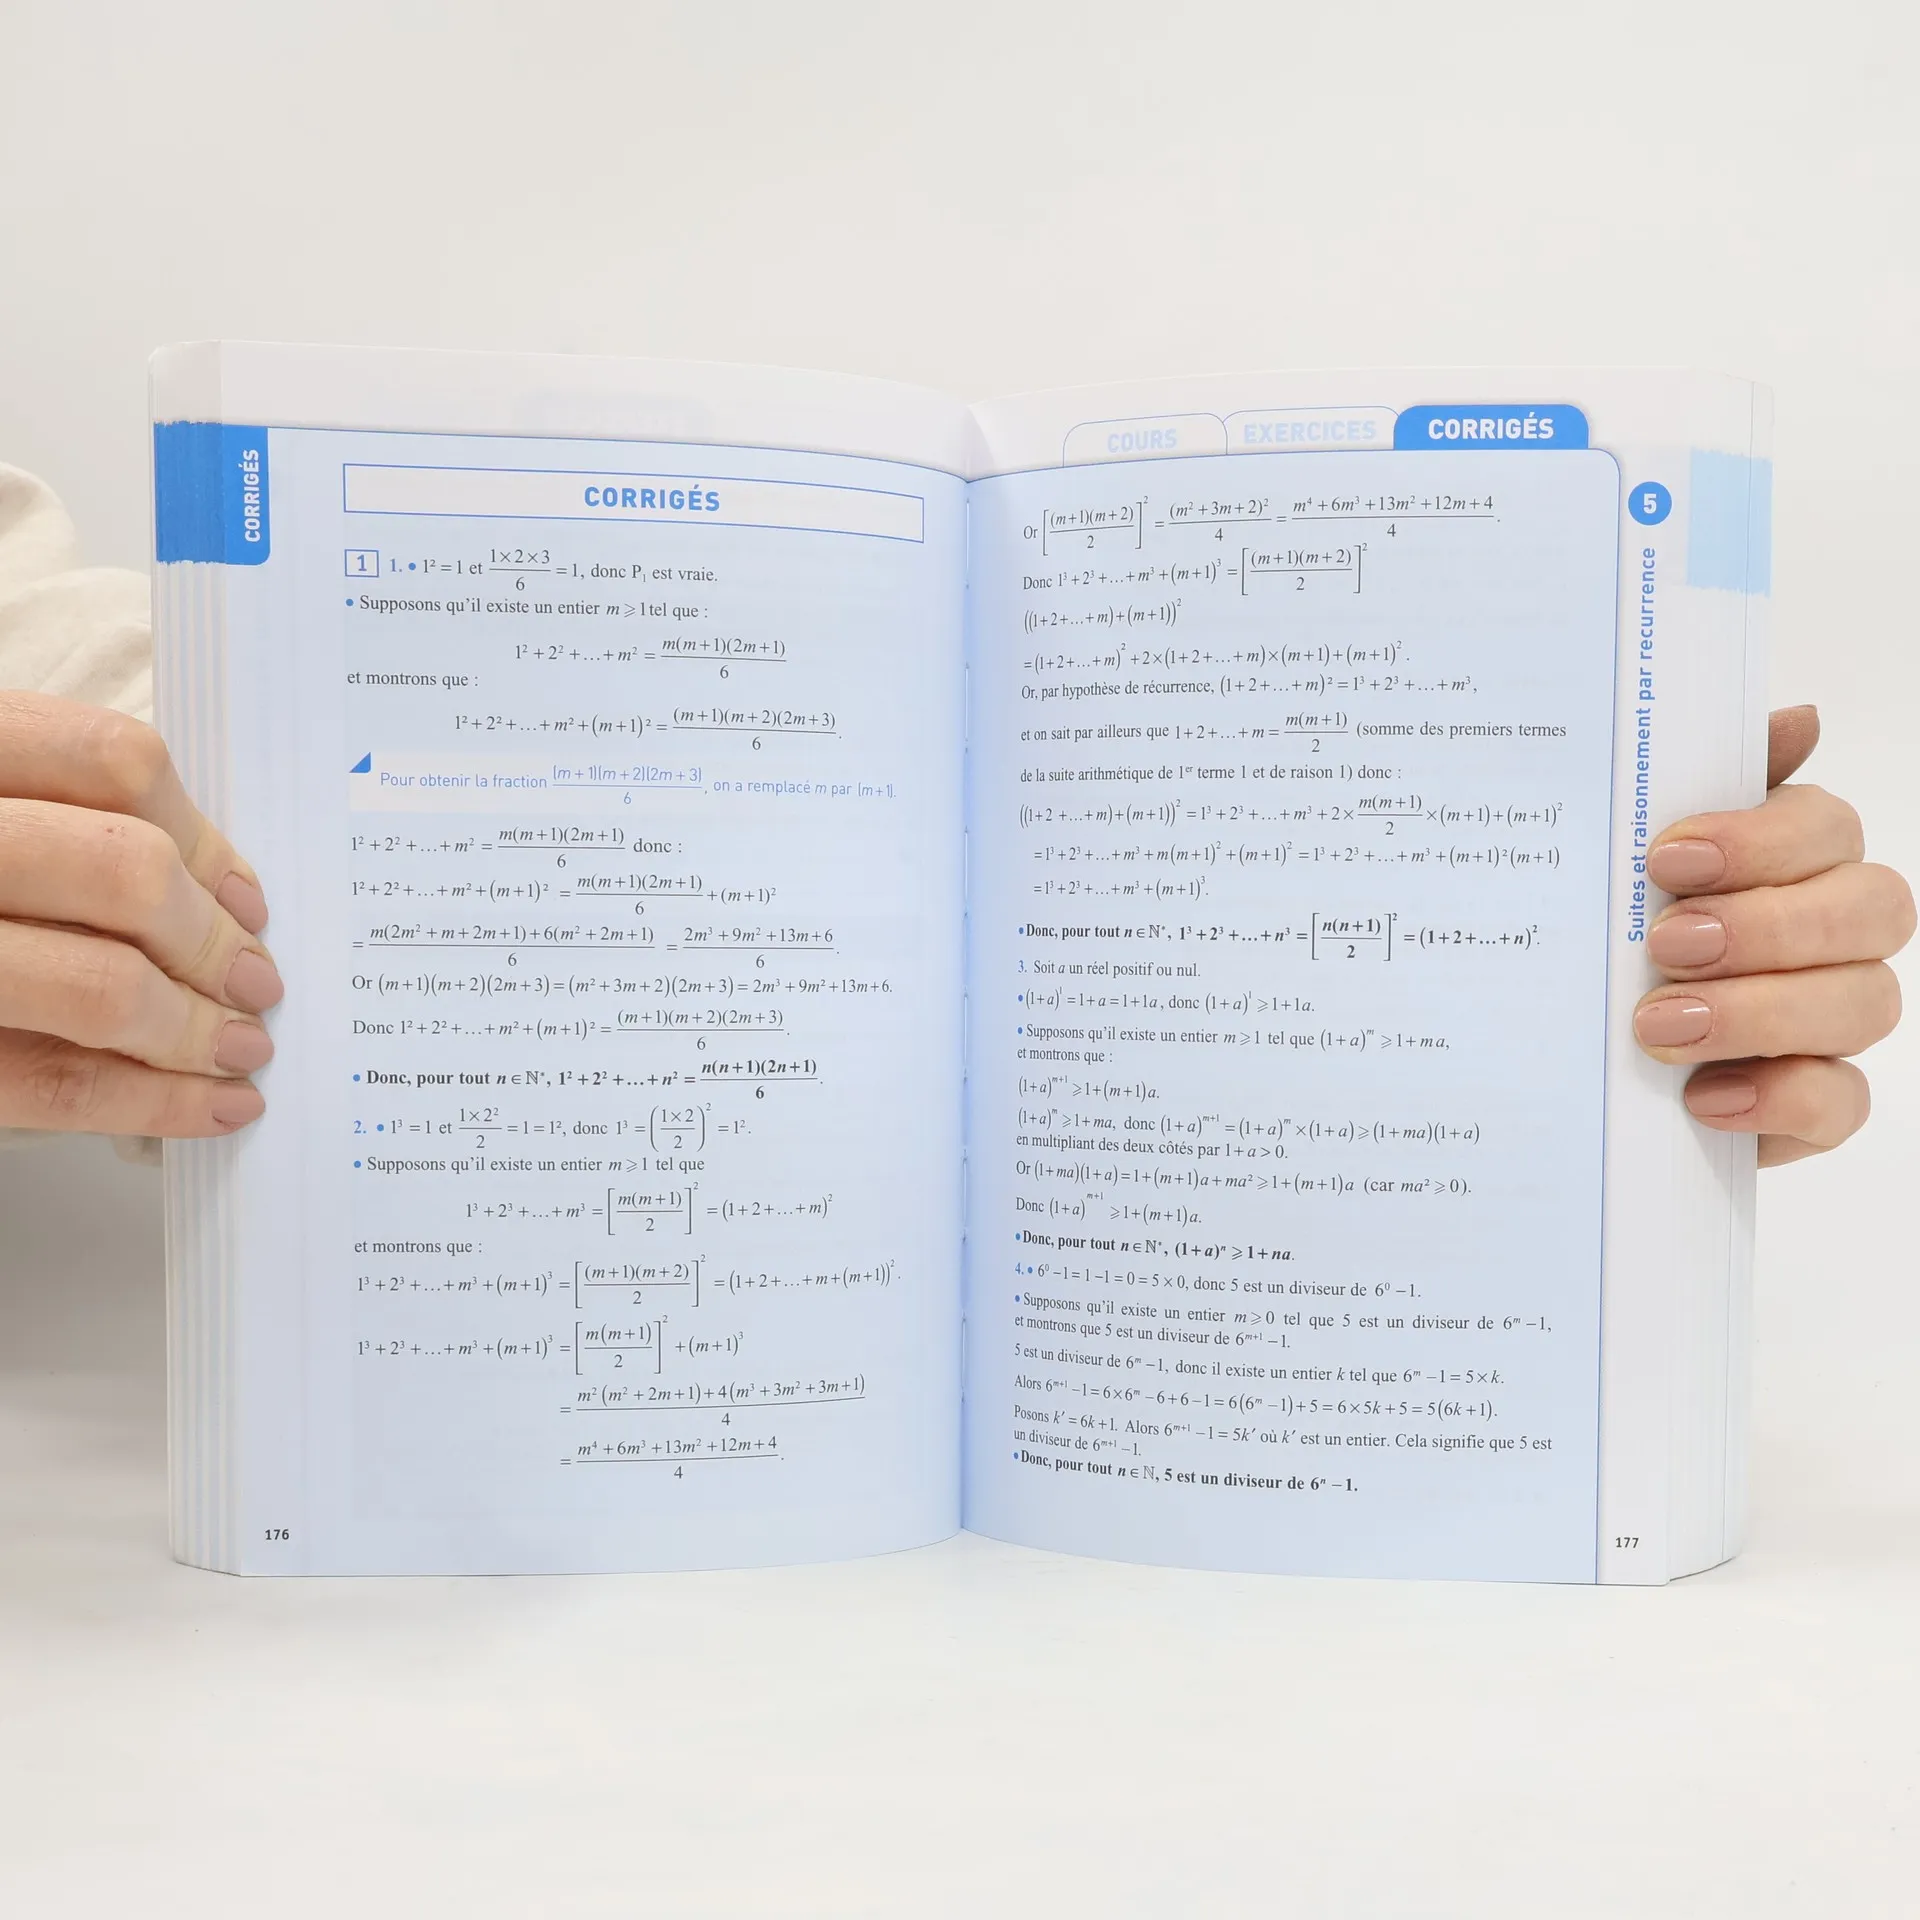 CORRIGÉS
CORRIGÉS
1 1. • 1² = 1 et (1×2×3)/6 = 1, donc P₁ est vraie.
• Supposons qu'il existe un entier m ⩾ 1 tel que :
1² + 2² + … + m² = m(m+1)(2m+1)/6
et montrons que :
1² + 2² + … + m² + (m+1)² = (m+1)(m+2)(2m+3)/6.
Pour obtenir la fraction (m+1)(m+2)(2m+3)/6, on a remplacé m par (m+1).
1² + 2² + … + m² = m(m+1)(2m+1)/6 donc :
1² + 2² + … + m² + (m+1)² = m(m+1)(2m+1)/6 + (m+1)²
= (m(2m² + m + 2m + 1) + 6(m² + 2m + 1))/6 = (2m³ + 9m² + 13m + 6)/6.
Or (m+1)(m+2)(2m+3) = (m² + 3m + 2)(2m+3) = 2m³ + 9m² + 13m + 6.
Donc 1² + 2² + … + m² + (m+1)² = (m+1)(m+2)(2m+3)/6.
• Donc, pour tout n ∈ ℕ*, 1² + 2² + … + n² = n(n+1)(2n+1)/6.
2. • 1³ = 1 et (1×2²)/2 = 1 = 1², donc 1³ = ((1×2)/2)² = 1².
• Supposons qu'il existe un entier m ⩾ 1 tel que
1³ + 2³ + … + m³ = [m(m+1)/2]² = (1+2+…+m)²
et montrons que :
1³ + 2³ + … + m³ + (m+1)³ = [(m+1)(m+2)/2]² = (1+2+…+m+(m+1))².
1³ + 2³ + … + m³ + (m+1)³ = [m(m+1)/2]² + (m+1)³
= (m²(m² + 2m + 1) + 4(m³ + 3m² + 3m + 1))/4
= (m⁴ + 6m³ + 13m² + 12m + 4)/4.
176
COURS EXERCICES CORRIGÉS
5
Suites et raisonnement par recurrence
Or [(m+1)(m+2)/2]² = (m² + 3m + 2)²/4 = (m⁴ + 6m³ + 13m² + 12m + 4)/4.
Donc 1³ + 2³ + … + m³ + (m+1)³ = [(m+1)(m+2)/2]²
((1+2+…+m)+(m+1))²
= (1+2+…+m)² + 2×(1+2+…+m)×(m+1)+(m+1)².
Or, par hypothèse de récurrence, (1+2+…+m)² = 1³ + 2³ + … + m³,
et on sait par ailleurs que 1+2+…+m = m(m+1)/2 (somme des premiers termes
de la suite arithmétique de 1er terme 1 et de raison 1) donc :
((1+2+…+m)+(m+1))² = 1³ + 2³ + … + m³ + 2 × m(m+1)/2 × (m+1)+(m+1)²
= 1³ + 2³ + … + m³ + m(m+1)² + (m+1)² = 1³ + 2³ + … + m³ + (m+1)²(m+1)
= 1³ + 2³ + … + m³ + (m+1)³.
• Donc, pour tout n ∈ ℕ*, 1³ + 2³ + … + n³ = [n(n+1)/2]² = (1+2+…+n)².
3. Soit a un réel positif ou nul.
• (1+a)¹ = 1+a = 1+1a, donc (1+a)¹ ⩾ 1+1a.
• Supposons qu'il existe un entier m ⩾ 1 tel que (1+a)ᵐ ⩾ 1+ma,
et montrons que :
(1+a)ᵐ⁺¹ ⩾ 1+(m+1)a.
(1+a)ᵐ ⩾ 1+ma, donc (1+a)ᵐ⁺¹ = (1+a)ᵐ × (1+a) ⩾ (1+ma)(1+a)
en multipliant des deux côtés par 1+a > 0.
Or (1+ma)(1+a) = 1+(m+1)a+ma² ⩾ 1+(m+1)a (car ma² ⩾ 0).
Donc (1+a)ᵐ⁺¹ ⩾ 1+(m+1)a.
• Donc, pour tout n ∈ ℕ*, (1+a)ⁿ ⩾ 1+na.
4. • 6⁰ − 1 = 1 − 1 = 0 = 5 × 0, donc 5 est un diviseur de 6⁰ − 1.
• Supposons qu'il existe un entier m ⩾ 0 tel que 5 est un diviseur de 6ᵐ − 1,
et montrons que 5 est un diviseur de 6ᵐ⁺¹ − 1.
5 est un diviseur de 6ᵐ − 1, donc il existe un entier k tel que 6ᵐ − 1 = 5 × k.
Alors 6ᵐ⁺¹ − 1 = 6×6ᵐ − 6 + 6 − 1 = 6(6ᵐ − 1) + 5 = 6 × 5k + 5 = 5(6k + 1).
Posons k′ = 6k + 1. Alors 6ᵐ⁺¹ − 1 = 5k′ où k′ est un entier. Cela signifie que 5 est
un diviseur de 6ᵐ⁺¹ − 1.
• Donc, pour tout n ∈ ℕ, 5 est un diviseur de 6ⁿ − 1.
177